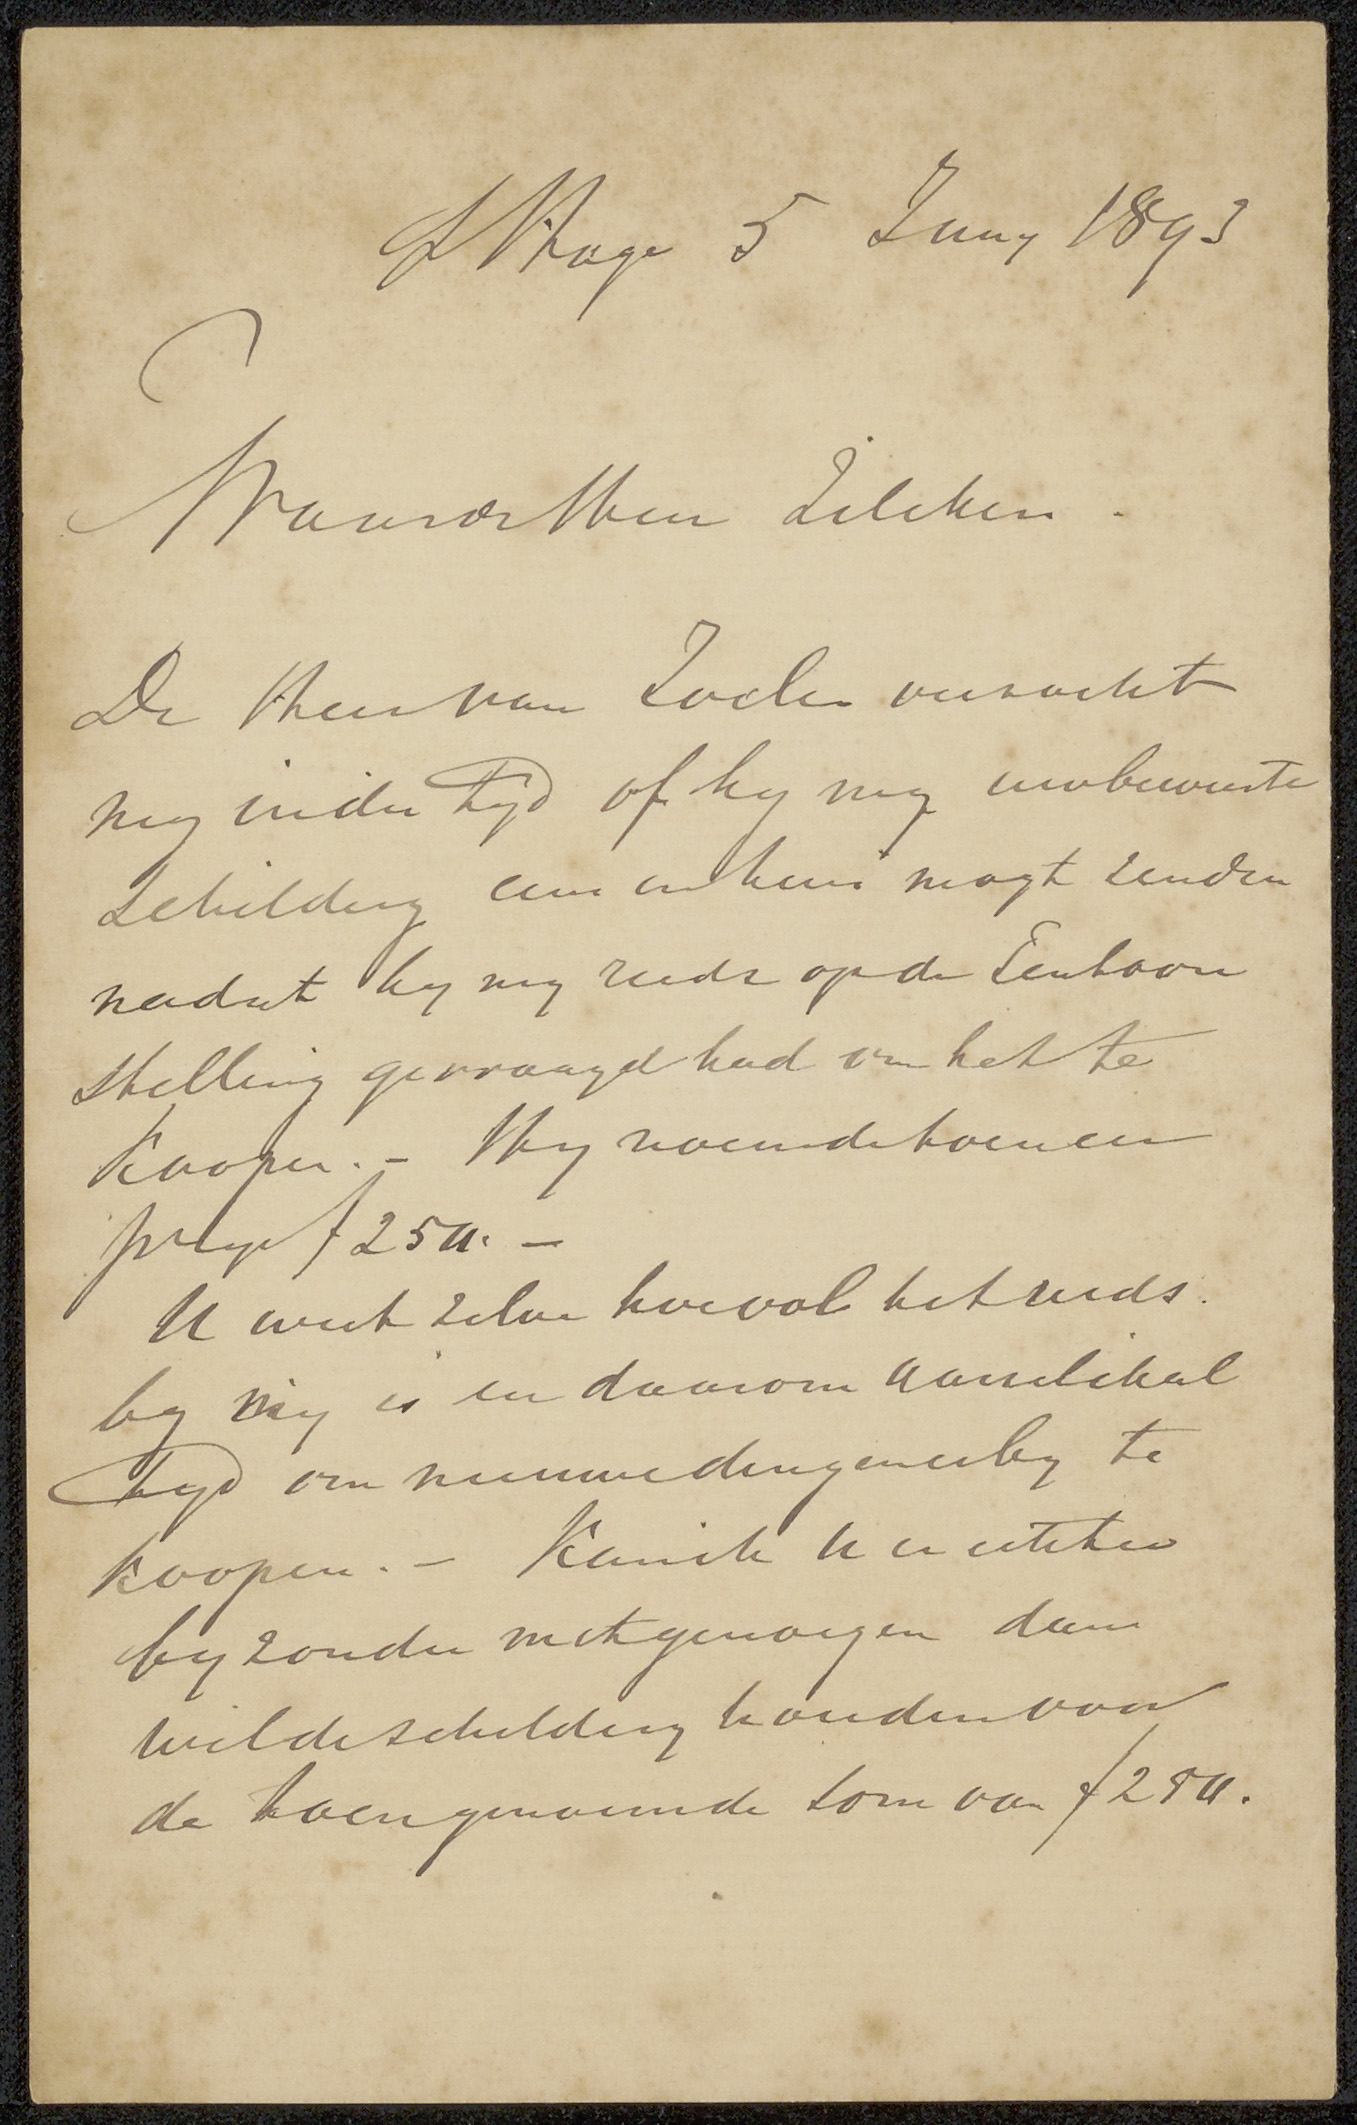 s'Hage 5 Juny 1893
Waarde Heer Zilcken.
De Heer van verzocht
my inder tyd of hy my bewuste
schildery eens mogt zenden
nadat hy my reeds op de Tentoon
stelling gevraagd had om het te
koopen. – Hy noemde toen een
prys f 250. –
U weet zelve hoe vol het reeds
by my is en daarom
tyd om nieuwe dingen erby te
koopen. – Kan ik U er echter
byzonder mede genoegen doen
wil de schildery houden voor
de toen genoemde som van f 250.